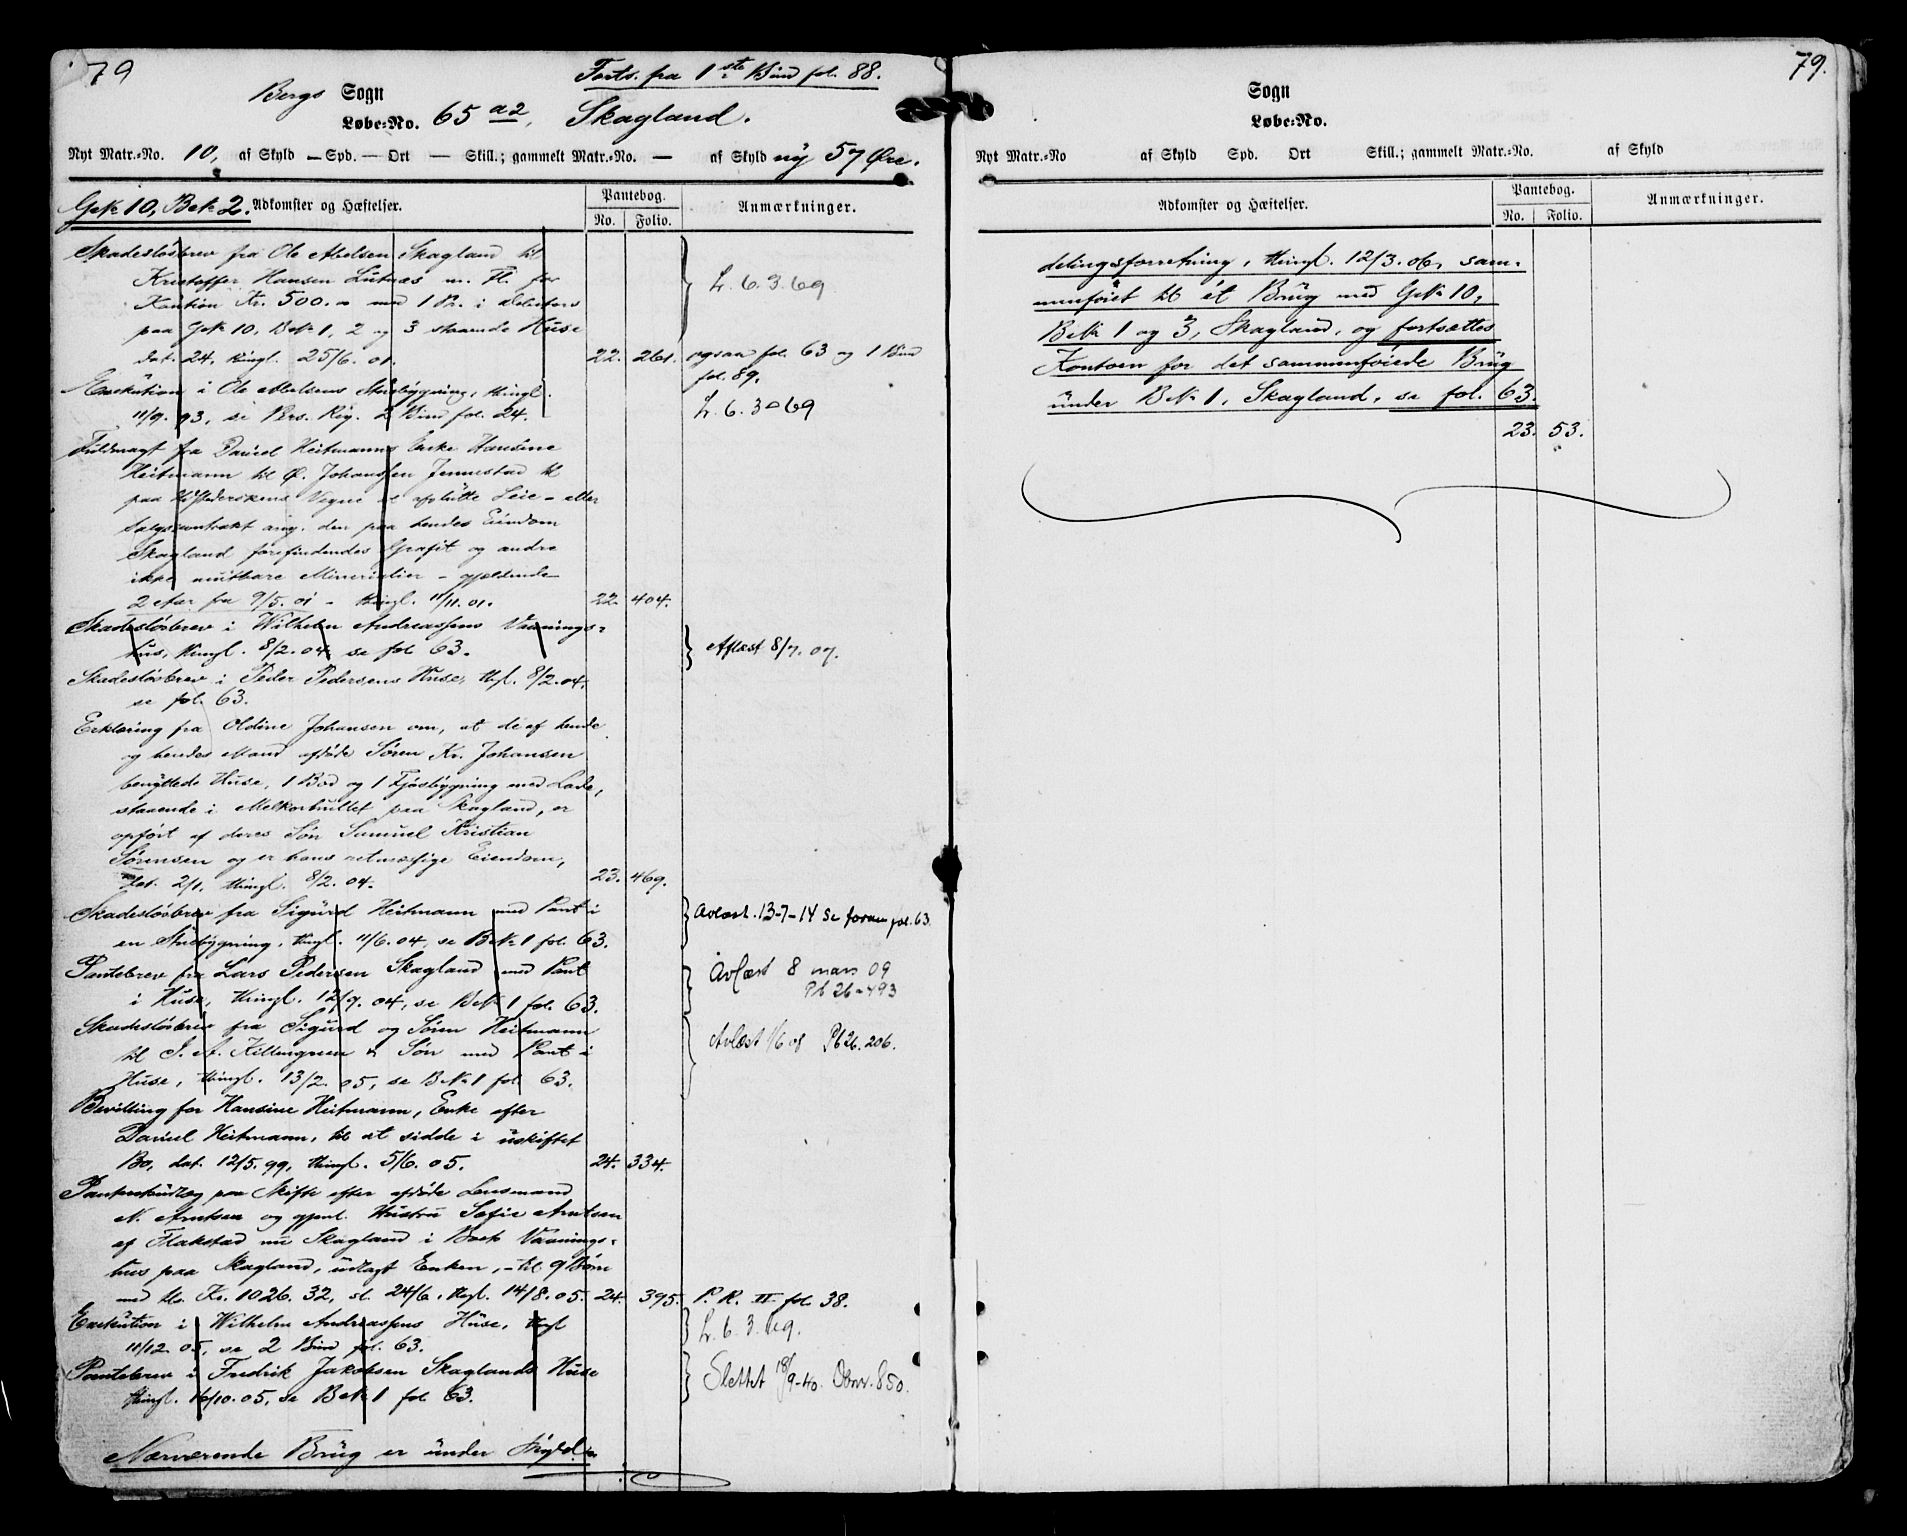 79
Forts. fra 1ste Bind fol. 88.
Bergs Sogn
Løbe-No. 65 a2, Skagland.
Nyt Matr.-No. 10, af Skyld — Spd. — Ort — Skill.; gammelt Matr.-No. — af Skyld ny 57 Øre.
GNr 10, BNr 2. Adkomster og Hæftelser.
Pantebog.
No. Folio.
Anmærkninger.
Skadesløsbrev fra Ole Abelsen Skagland til
Kristoffer Hansen Lutnæs m. Fl. for
Kaution Kr. 500.- med 1 Pr. i Debitors
paa GNr 10, BNr 1, 2 og 3 staaende Huse
dat. 24, thingl. 25/6. 01. 22. 261. ogsaa fol. 63 og 1 Bind
fol. 89.
L. 6. 3. 69
Exekution i Ole Abelsens Stuebygning, thingl.
11/9. 93, se Pers. Reg. 2 Bind fol. 24.
L. 6. 3 - 69
Fuldmagt fra Daniel Heitmanns Enke Hansine
Heitmann til O. Johanssen Jennestad til
paa Udstederskens Vegne at afslutte Leie- eller
Salgscontrakt ang. den paa hendes Eiendom
Skagland forefindendes Grafit og andre
ikke mutbare Mineralier - gjældende
2 Aar fra 9/5. 01 - thingl. 11/11. 01. 22. 404.
Skadesløsbrev i Wilhelm Andreassens Vaanings-
hus, thingl. 8/2. 04 se fol 63.
Aflæst 8/7. 07.
Skadesløsbrev i Peder Pedersens Huse, thgl. 8/2. 04,
se fol. 63.
Erklæring fra Oldine Johansen om, at de af hende
og hendes Mand afdøde Søren Kr. Johansen
benyttede Huse, 1 Bod og 1 Fjøsbygning med Lade,
staaende i Melkorhullet paa Skagland, er
opført af deres Søn Samuel Kristian
Sørensen og er hans retmæssige Eiendom,
dat. 2/1. thingl. 8/2. 04. 23. 469.
Skadesløsbrev fra Sigurd Heitmann med Pant i
en Stuebygning, thingl. 11/6. 04, se BNr 1 fol. 63.
Avlæst. 13-7-14 se foran fol. 63.
Pantebrev fra Lars Pedersen Skagland med Pant
i Huse, thingl. 12/9. 04, se BNr 1 fol. 63.
Avlæst 8 mars 09
Pb 26-493
Skadesløsbrev fra Sigurd og Søren Heitmann
til J. A. Killengreen & Søn med Pant i
Huse, thingl. 13/2. 05, se BNr 1 fol 63.
Avlæst 1/6 08 Pb 26. 206.
Bevilling for Hansine Heitmann, Enke efter
Daniel Heitmann, til at sidde i uskiftet
Bo, dat. 12/5. 99, thingl. 5/6. 05. 24. 334.
Panteudlæg paa Skifte efter afdøde Lensmand
N. Arntsen og gjenl. Hustru Sofie Arntsen
af Flakstad nu Skagland i Boets Vaanings-
hus paa Skagland, udlagt Enken, - til 9 Børn
med tils. Kr. 1026. 32, sl. 24/6, thgl. 14/8. 05. 24. 395. P. R. II fol. 38.
Exekution i Wilhelm Andreassens Huse, thgl
11/12. 05, se 2 Bind fol. 63.
L. 6. 3. 69.
Pantebrev i Fredrik Jakobsen Skaglands Huse
thingl. 16/10. 05, se BNr 1 fol 63.
Slettet 18/9-40. Dbnr. 850.
Nærværende Brug er under Skyld-
79.
Sogn
Løbe-No.
Nyt Matr.-No af Skyld Spd. Ort Skill.; gammelt Matr.-No. af Skyld
Adkomster og Hæftelser.
Pantebog.
No. Folio.
Anmærkninger.
delingsforretning, thingl. 12/3. 06, sam-
menføiet til ét Brug med GNr 10,
BNr 1 og 3, Skagland, og fortsættes
Kontoen for det sammenføiede Brug
under BNr 1, Skagland, se fol. 63.
23. 53.